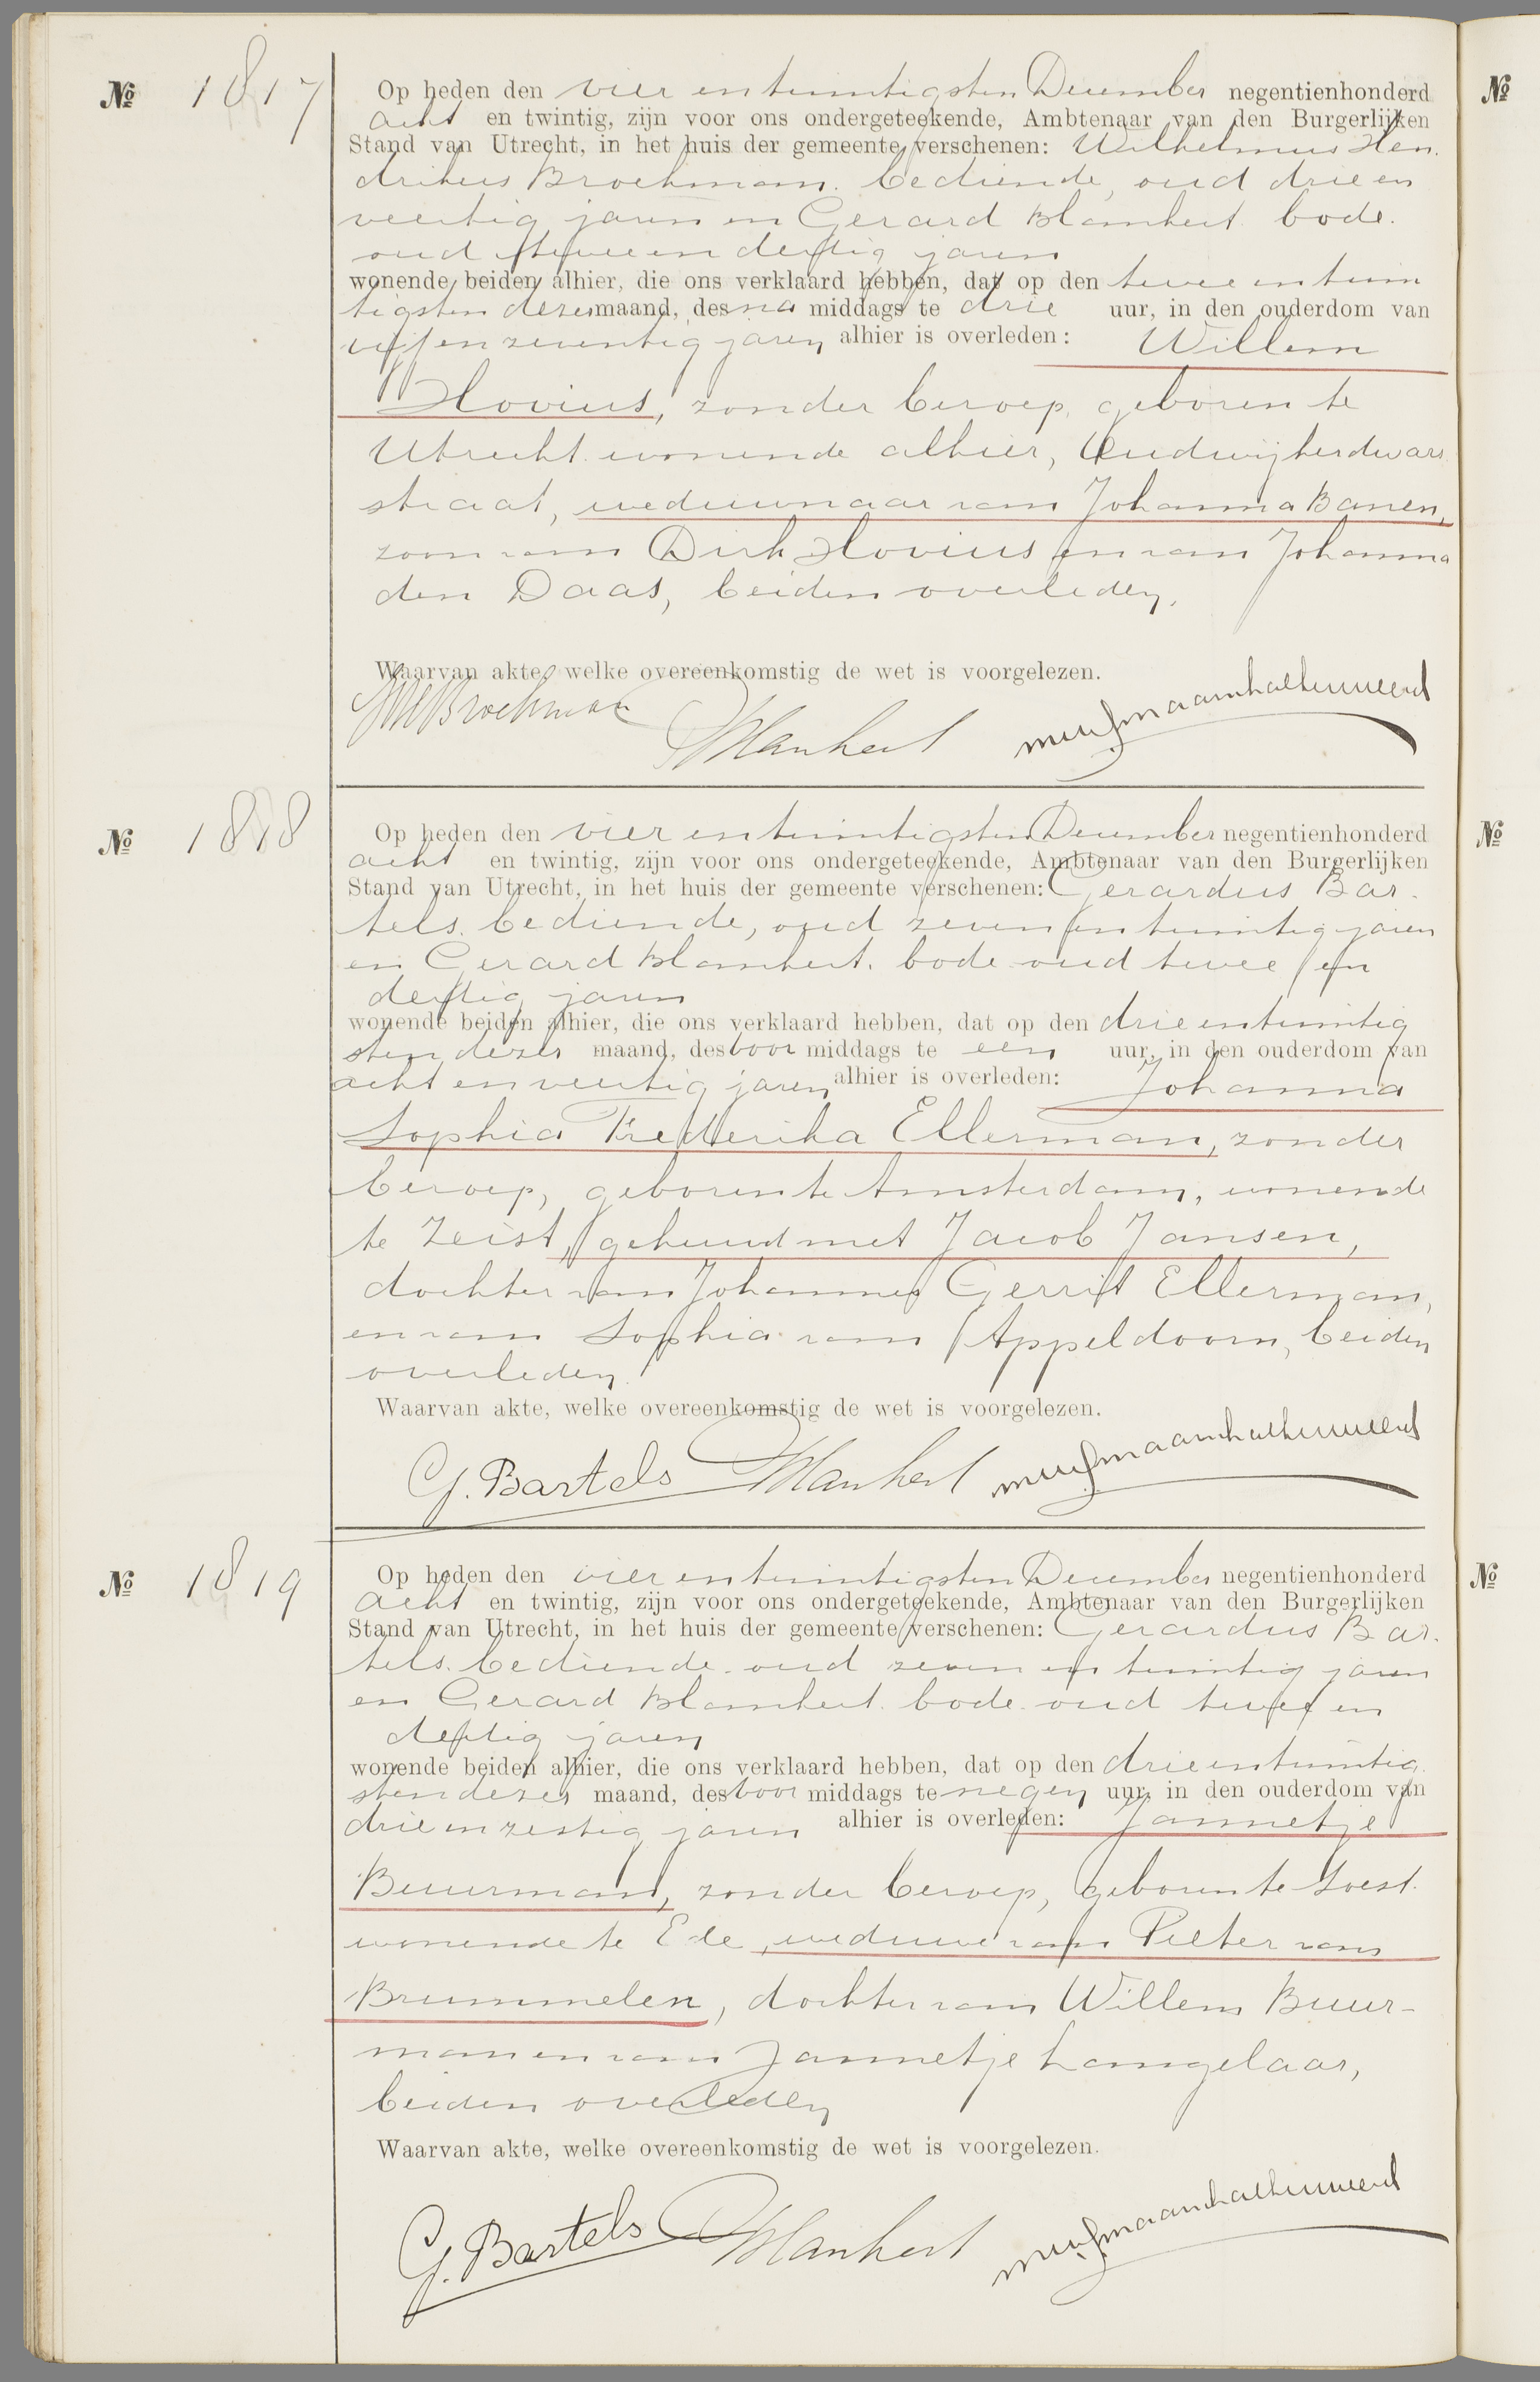 No 1817
Op heden den vier en twintigsten December negentienhonderd
acht en twintig, zijn voor ons ondergeteekende, Ambtenaar van den Burgerlijken
Stand van Utrecht, in het huis der gemeente verschenen: Wilhelmus Hen-
drikus Broekman. bediende, oud drie en
veertig jaren en Gerard Blankert bode.
oud twee en dertig jaren
wonende beiden alhier, die ons verklaard hebben, dat op den twee en twin
tigsten dezer maand, des na middags te drie uur, in den ouderdom van
vijf en zeventig jaren alhier is overleden: Willem
Hovius, zonder beroep, geboren te
Utrecht wonende alhier, Oudwijkerdwars
straat, weduwnaar van Johanna Banen,
zoon van Dirk Hovius en van Johanna
den Daas, beiden overleden.
Waarvan akte, welke overeenkomstig de wet is voorgelezen.
WHBroekman GBlankert
No 1818
Op heden den vier en twintigsten December negentienhonderd
acht en twintig, zijn voor ons ondergeteekende, Ambtenaar van den Burgerlijken
Stand van Utrecht, in het huis der gemeente verschenen: Gerardus Bar-
tels. bediende, oud zeven en twintig jaren
en Gerard Blankert. bode oud twee en
dertig jaren
wonende beiden alhier, die ons verklaard hebben, dat op den drie en twintig
sten dezer maand, des voor middags te een uur, in den ouderdom van
acht en veertig jaren alhier is overleden: Johanna
Sophia Frederika Ellerman, zonder
beroep, geboren te Amsterdam, wonende
te Zeist, gehuwd met Jacob Jansen,
dochter van Johannes Gerrit Ellerman,
en van Sophia van Appeldoorn, beiden
overleden.
Waarvan akte, welke overeenkomstig de wet is voorgelezen.
G. Bartels GBlankert
No 1819
Op heden den vier en twintigsten December negentienhonderd
acht en twintig, zijn voor ons ondergeteekende, Ambtenaar van den Burgerlijken
Stand van Utrecht, in het huis der gemeente verschenen: Gerardus Bar-
tels. bediende oud zeven en twintig jaren
en Gerard Blankert. bode oud twee en
dertig jaren
wonende beiden alhier, die ons verklaard hebben, dat op den drie en twintig
sten dezer maand, des voor middags te negen uur, in den ouderdom van
drie en zestig jaren alhier is overleden: Jannetje
Buurman, zonder beroep, geboren te Soest.
wonende te Ede, weduwe van Pieter van
Brummelen, dochter van Willem Buur-
man en van Jannetje Langelaar,
beiden overleden
Waarvan akte, welke overeenkomstig de wet is voorgelezen.
G. Bartels GBlankert
No
No
No